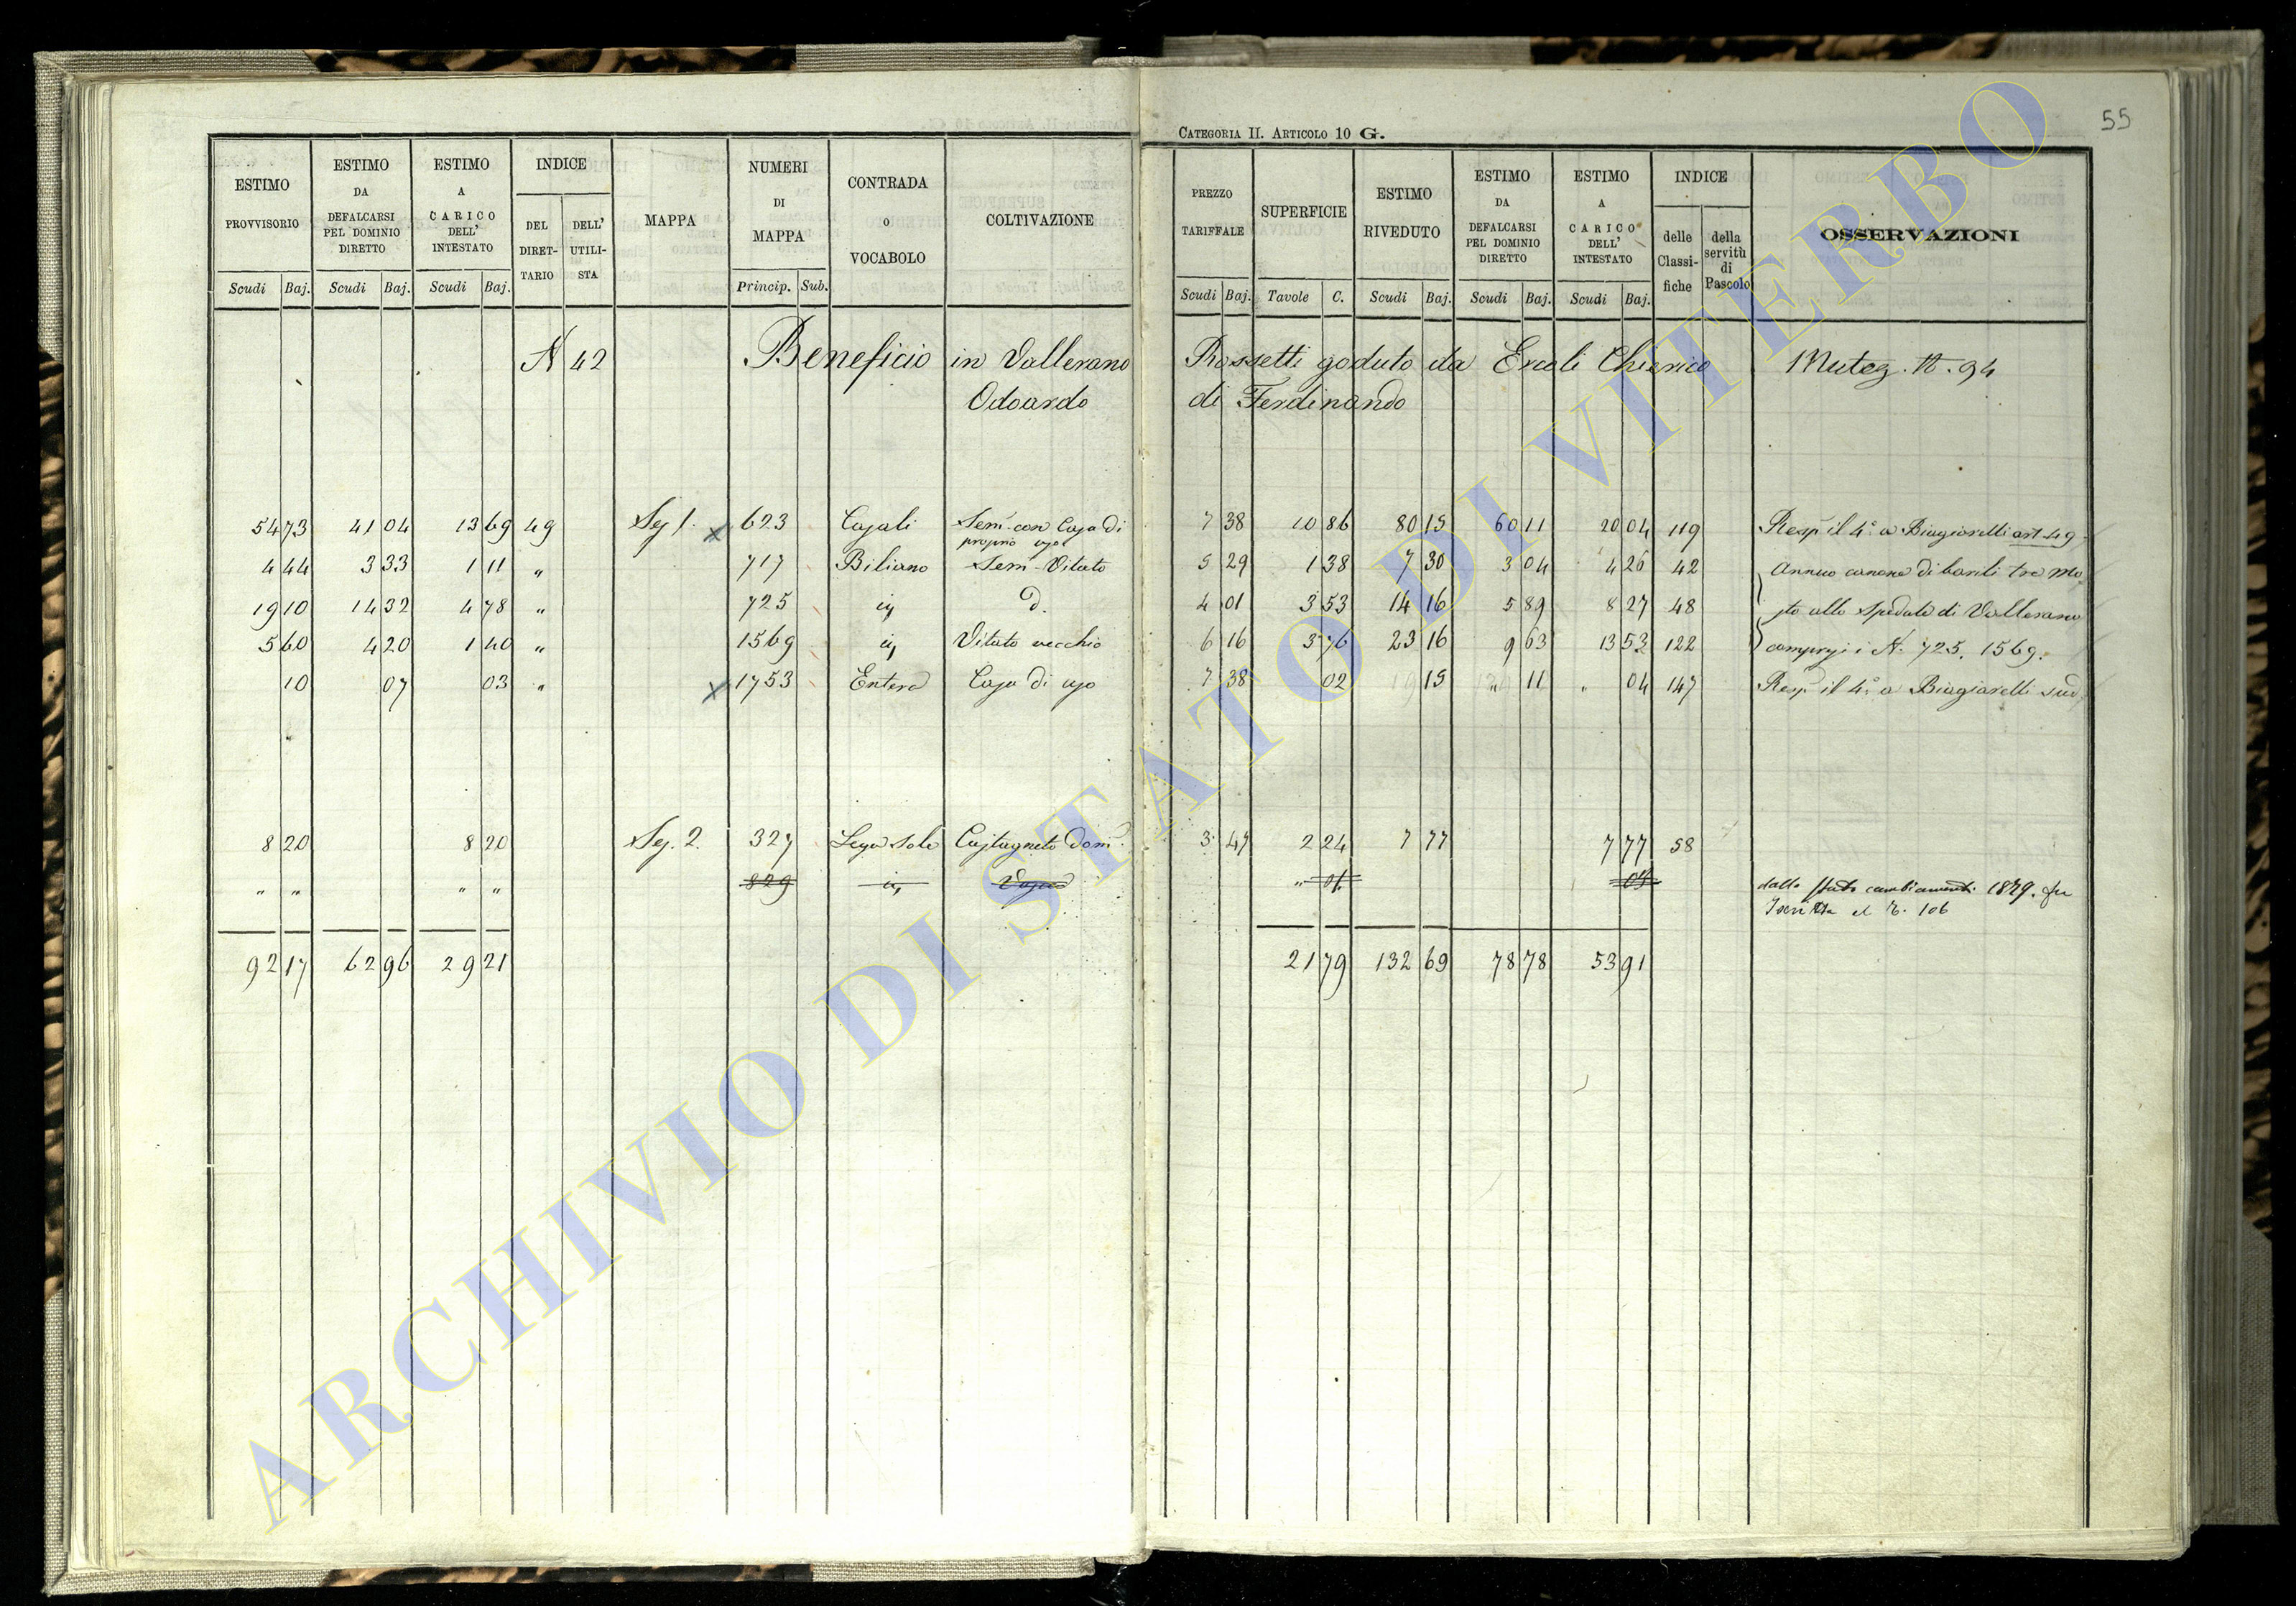 CATEGORIA II. ARTICOLO 10 G.
55
ESTIMO PROVVISORIO Scudi Baj. ESTIMO DA DEFALCARSI PEL DOMINIO DIRETTO Scudi Baj. ESTIMO A CARICO DELL' INTESTATO Scudi Baj. INDICE DEL DIRETTARIO DELL' UTILISTA MAPPA NUMERI DI MAPPA Princip. Sub. CONTRADA O VOCABOLO COLTIVAZIONE PREZZO TARIFFALE Scudi Baj. SUPERFICIE Tavole C. ESTIMO RIVEDUTO Scudi Baj. ESTIMO DA DEFALCARSI PEL DOMINIO DIRETTO Scudi Baj. ESTIMO A CARICO DELL' INTESTATO Scudi Baj. INDICE delle Classifiche della servitù di Pascolo OSSERVAZIONI
N 42 Beneficio in Vallerano Rossetti goduto da Ercoli Chierico N. 94
Odoardo di Ferdinando
54 73 41 04 13 69 49 Sez 1. x 623 Casali Sem. con Casa di proprio uso 7 38 10 86 80 15 60 11 20 04 119 Resp il 4° a Biagiarelli art 49
4 44 3 33 1 11 " 717 Biliano Sem. Vitato 5 29 1 38 7 30 3 04 4 26 42 Annuo canone di barili tre mo
19 10 14 32 4 78 " 725 d. 4 01 3 53 14 16 5 89 8 27 48 sto allo Spedale di Vallerano
5 60 4 20 1 40 " 1569 Vitato vecchio 6 16 3 76 23 16 9 63 13 53 122 compresi i N. 725. 1569.
10 07 03 " x 1753 Casa di uso 7 38 02 15 " 11 " 04 147 Resp il 4° a Biagiarelli sud
8 20 8 20 Sez. 2. 327 Castagneto dom. 3 47 2 24 7 77 7 77 58
" " " " 829 " 01 dallo Stato cambiamenti 1879. fu
106
92 17 62 96 29 21 21 79 132 69 78 78 53 91
ARCHIVIO DI STATO DI VITERBO